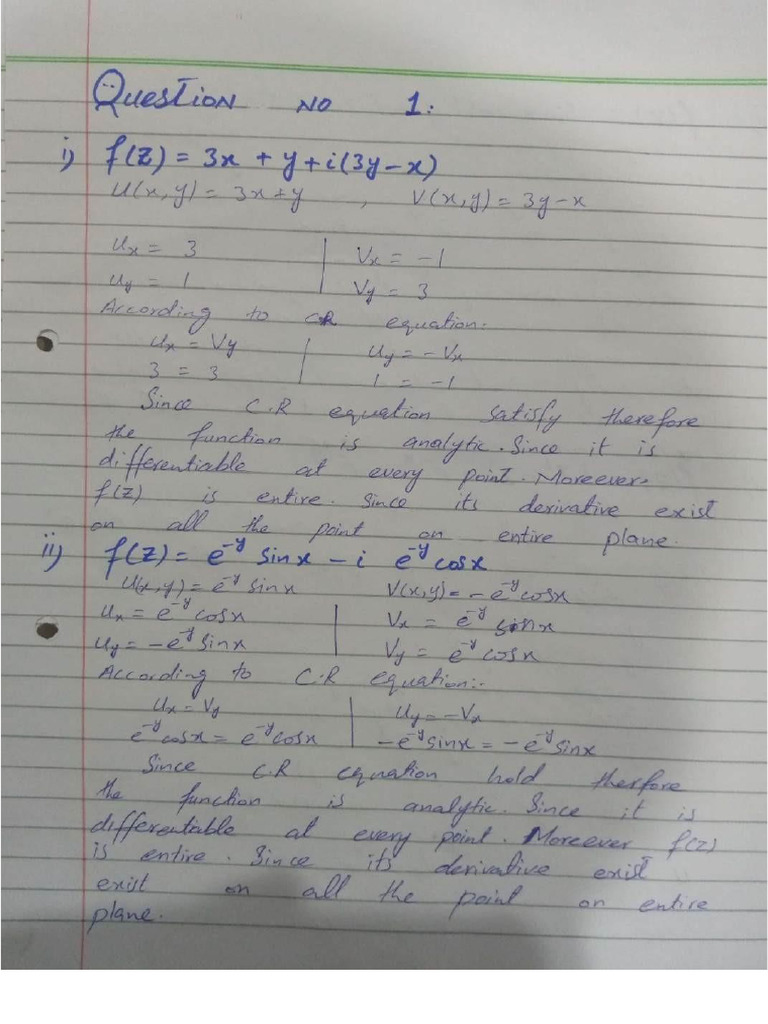 Question No 1:
i) f(z) = 3x + y + i(3y-x)
U(x,y) = 3x+y , V(x,y) = 3y-x
Ux = 3 | Vx = -1
Uy = 1 | Vy = 3
According to CR equation:
Ux = Vy | Uy = -Vx
3 = 3 | 1 = -1
Since C.R equation satisfy therefore
the function is analytic. Since it is
differentiable at every point. Moreever,
f(z) is entire. Since its derivative exist
on all the point on entire plane.
ii) f(z) = e^-y sinx - i e^-y cosx
U(x,y) = e^-y sinx V(x,y) = -e^-y cosx
Ux = e^-y cosx | Vx = e^-y sinx
Uy = -e^-y sinx | Vy = e^-y cosx
According to C.R equation:-
Ux = Vy | Uy = -Vx
e^-y cosx = e^-y cosx | -e^-y sinx = -e^-y sinx
Since C.R equation hold therfore
the function is analytic. Since it is
differentiable at every point. Moreever f(z)
is entire. Since its derivative exist
exist on all the point on entire
plane.